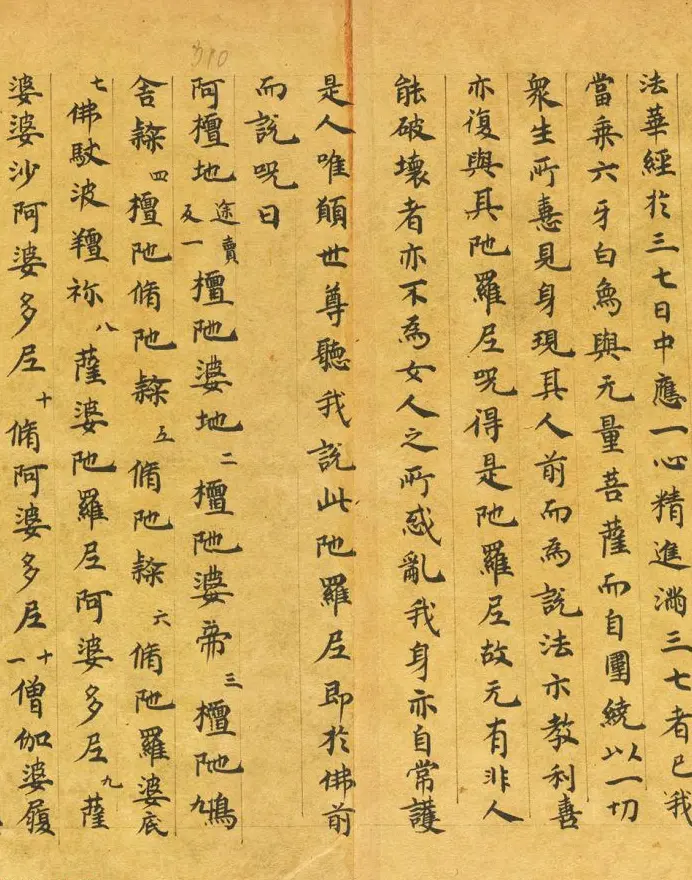 310
法華經於三七日中應一心精進滿三七者已我
當乘六牙白象與无量菩薩而自圍繞以一切
衆生所憙見身現其人前而為說法示教利喜
亦復與其陁羅尼呪得是陁羅尼故无有非人
能破壞者亦不為女人之所惑亂我身亦自常護
是人唯願世尊聽我說此陁羅尼即於佛前
而說呪曰
阿檀地途賣反一檀陁婆地二檀陁婆帝三檀陁鳩
舍隸四檀陁脩陁隸五脩陁隸六脩陁羅婆底
七佛馱波羶祢八薩婆陁羅尼阿婆多尼九薩
婆婆沙阿婆多尼十脩阿婆多尼十一僧伽婆履